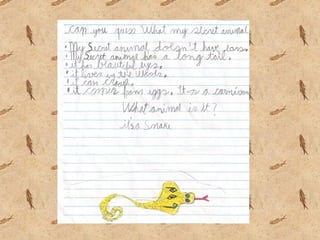 Can you guess What my secret animal
• My Secret animal doesn't have ears.
• My Secret animal has a long tail.
• it has beautiful eyes.
• it lives in the woods.
• it can
• it comes from eggs. It is a carnivore
What animal is it?
it's a snake